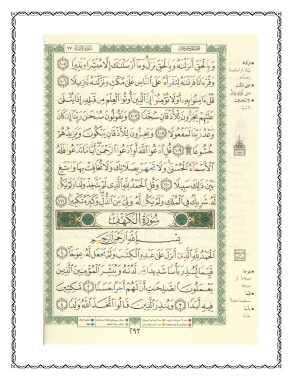 وَبِالْحَقِّ أَنزَلْنَاهُ وَبِالْحَقِّ نَزَلَ وَمَا أَرْسَلْنَاكَ إِلَّا مُبَشِّرًا وَنَذِيرًا ١٠٥
وَقُرْءَانًا فَرَقْنَاهُ لِتَقْرَأَهُ عَلَى النَّاسِ عَلَىٰ مُكْثٍ وَنَزَّلْنَاهُ تَنزِيلًا ١٠٦
قُلْ ءَامِنُوا بِهِ أَوْ لَا تُؤْمِنُوا إِنَّ الَّذِينَ أُوتُوا الْعِلْمَ مِن قَبْلِهِ إِذَا يُتْلَىٰ
عَلَيْهِمْ يَخِرُّونَ لِلْأَذْقَانِ سُجَّدًا ١٠٧ وَيَقُولُونَ سُبْحَانَ رَبِّنَا إِن كَانَ
وَعْدُ رَبِّنَا لَمَفْعُولًا ١٠٨ وَيَخِرُّونَ لِلْأَذْقَانِ يَبْكُونَ وَيَزِيدُهُمْ
خُشُوعًا ١٠٩ قُلِ ادْعُوا اللَّهَ أَوِ ادْعُوا الرَّحْمَٰنَ أَيًّا مَّا تَدْعُوا فَلَهُ
الْأَسْمَاءُ الْحُسْنَىٰ وَلَا تَجْهَرْ بِصَلَاتِكَ وَلَا تُخَافِتْ بِهَا وَابْتَغِ
بَيْنَ ذَٰلِكَ سَبِيلًا ١١٠ وَقُلِ الْحَمْدُ لِلَّهِ الَّذِي لَمْ يَتَّخِذْ وَلَدًا وَلَمْ يَكُن
لَّهُ شَرِيكٌ فِي الْمُلْكِ وَلَمْ يَكُن لَّهُ وَلِيٌّ مِّنَ الذُّلِّ وَكَبِّرْهُ تَكْبِيرًا ١١١
سُورَةُ الْكَهْفِ
بِسْمِ اللَّهِ الرَّحْمَٰنِ الرَّحِيمِ
الْحَمْدُ لِلَّهِ الَّذِي أَنزَلَ عَلَىٰ عَبْدِهِ الْكِتَابَ وَلَمْ يَجْعَل لَّهُ عِوَجًا ١
قَيِّمًا لِّيُنذِرَ بَأْسًا شَدِيدًا مِّن لَّدُنْهُ وَيُبَشِّرَ الْمُؤْمِنِينَ الَّذِينَ
يَعْمَلُونَ الصَّالِحَاتِ أَنَّ لَهُمْ أَجْرًا حَسَنًا ٢ مَّاكِثِينَ
فِيهِ أَبَدًا ٣ وَيُنذِرَ الَّذِينَ قَالُوا اتَّخَذَ اللَّهُ وَلَدًا ٤
٢٩٣